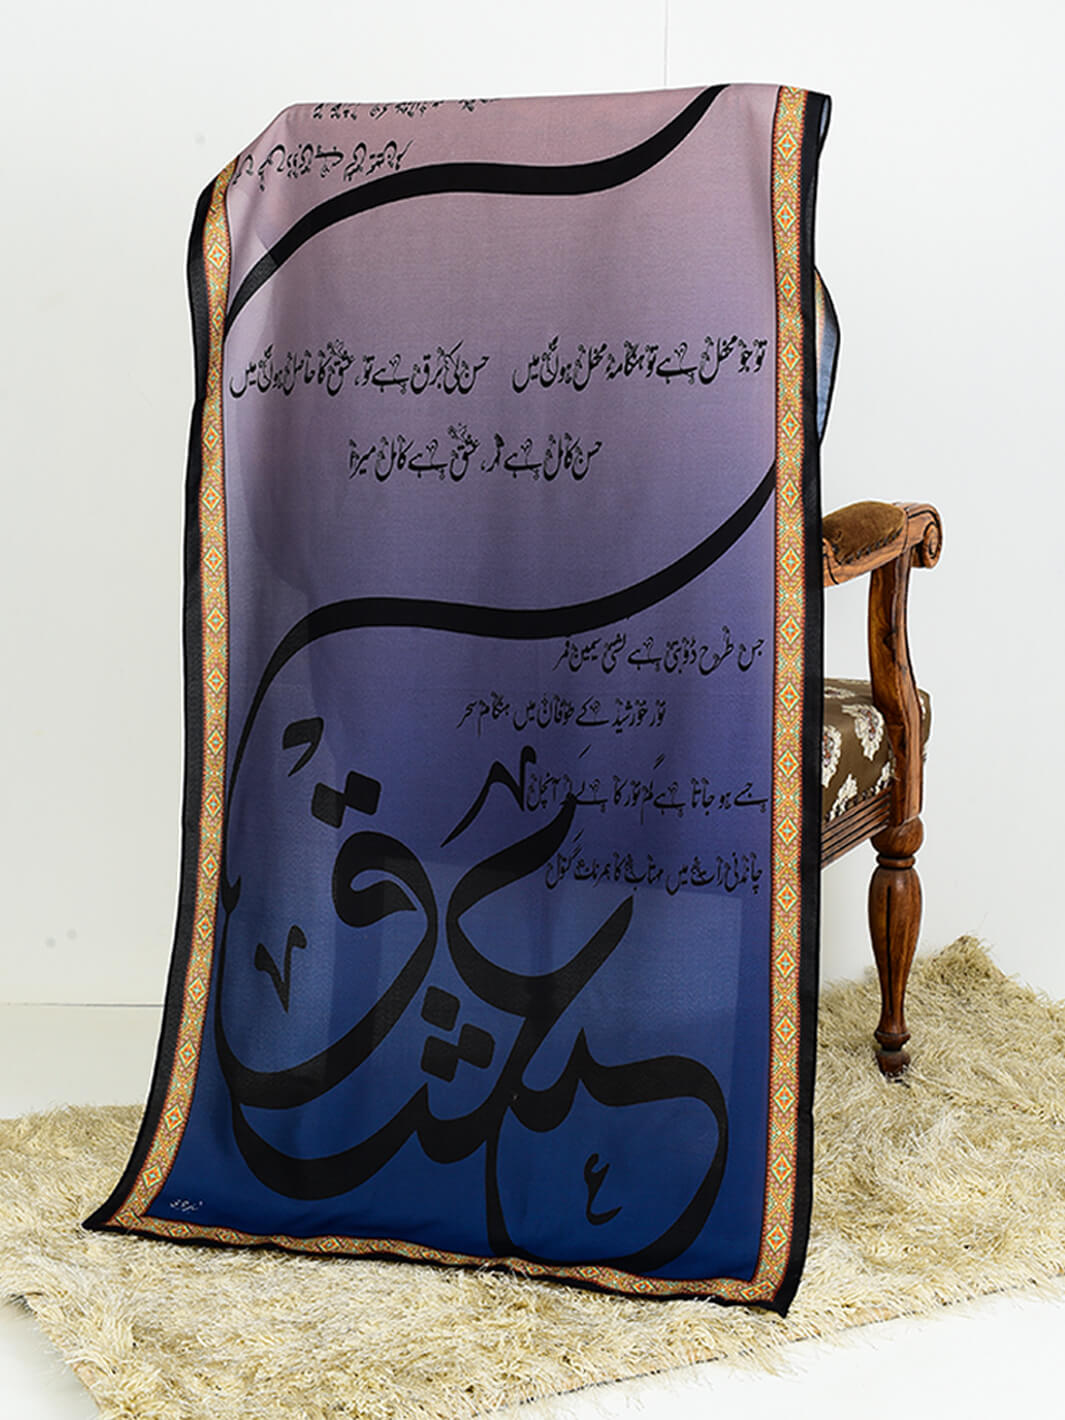 تو جو محفل ہے تو ہنگامۂ محفل ہوں میں حسن کی برق ہے تو، عشق کا حاصل ہوں میں
حسن کامل ہے ترا، عشق ہے کامل میرا
جس طرح ڈوبتی ہے کشتیٔ سیمین قمر
نور خورشید کے طوفان میں ہنگام سحر
جسے ہو جاتا ہے گم نور کا لے کر آنچل
چاندنی رات میں مہتاب کا ہم رنگ کنول
عشق